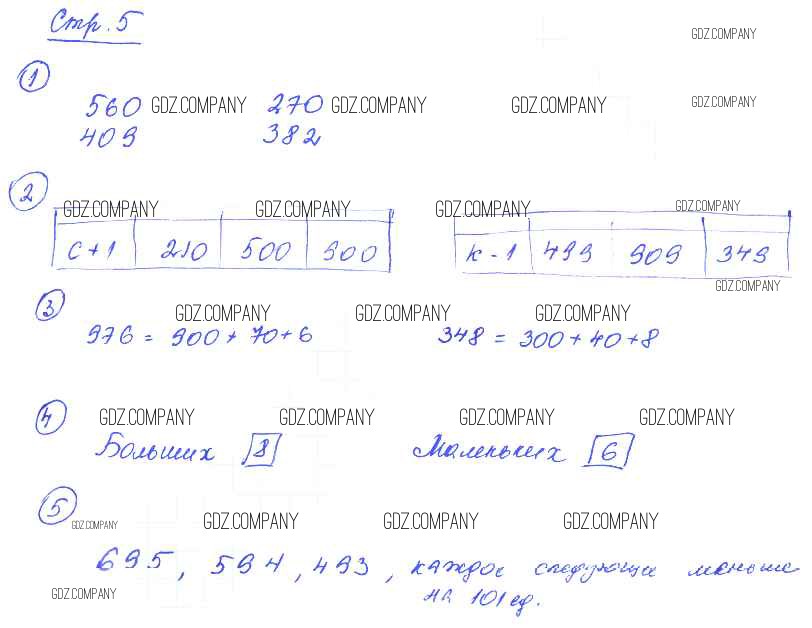 Стр. 5
GDZ.COMPANY
1
560 GDZ.COMPANY 270 GDZ.COMPANY GDZ.COMPANY GDZ.COMPANY
409 382
2
GDZ.COMPANY GDZ.COMPANY GDZ.COMPANY GDZ.COMPANY
с+1 210 500 900 к-1 499 909 349
GDZ.COMPANY
3
GDZ.COMPANY GDZ.COMPANY GDZ.COMPANY
976 = 900 + 70 + 6 348 = 300 + 40 + 8
4
GDZ.COMPANY GDZ.COMPANY GDZ.COMPANY GDZ.COMPANY
Больших 8 Маленьких 6
5
GDZ.COMPANY GDZ.COMPANY GDZ.COMPANY GDZ.COMPANY
695, 594, 493, каждое следующее меньше
GDZ.COMPANY на 101 ед.